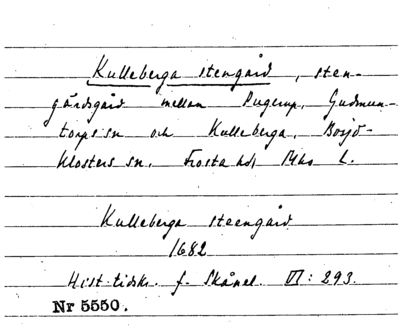 Kulleberga stengård, sten-
gärdsgård mellan Pugerup, Gudmun-
torps sn och Kulleberga, Bosjö-
klosters sn, Frosta hd, Mhs L.
Kulleberga steengård
1682
Hist. tidskr. f. Skånel. VI: 293.
Nr 5550.